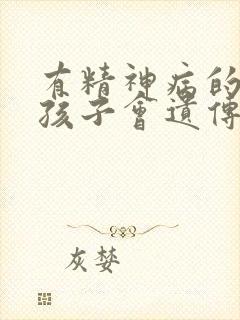 有精神病的
孩子會遺傳
灰婪